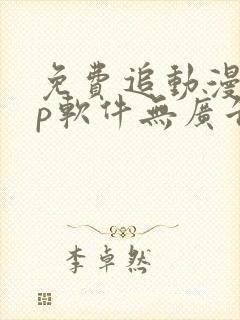 免費追動漫
p軟件無廣
李卓然